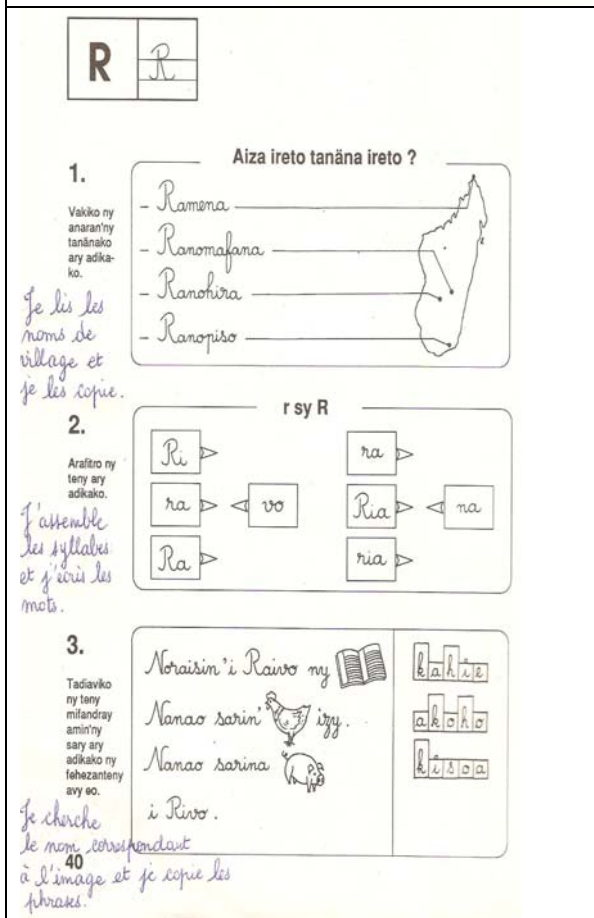 R R
Aiza ireto tanäna ireto ?
1.
Vakiko ny
anaran'ny
tanänako
ary adika-
ko.
Je lis les
noms de
village et
je les copie.
- Ramena
- Ranomafana
- Ranohira
- Ranopiso
r sy R
2.
Arafitro ny
teny ary
adikako.
J'assemble
les syllabes
et j'écris les
mots.
Ri ra
ra vo Ria na
Ra ria
3.
Tadiaviko
ny teny
mifandray
amin'ny
sary ary
adikako ny
fehezanteny
avy eo.
Je cherche
le nom correspondant
à l'image et je copie les
phrases.
Noraisin'i Raivo ny
Nanao sarin' izy.
Nanao sarina
i Rivo.
kahie
akoho
kisoa
40